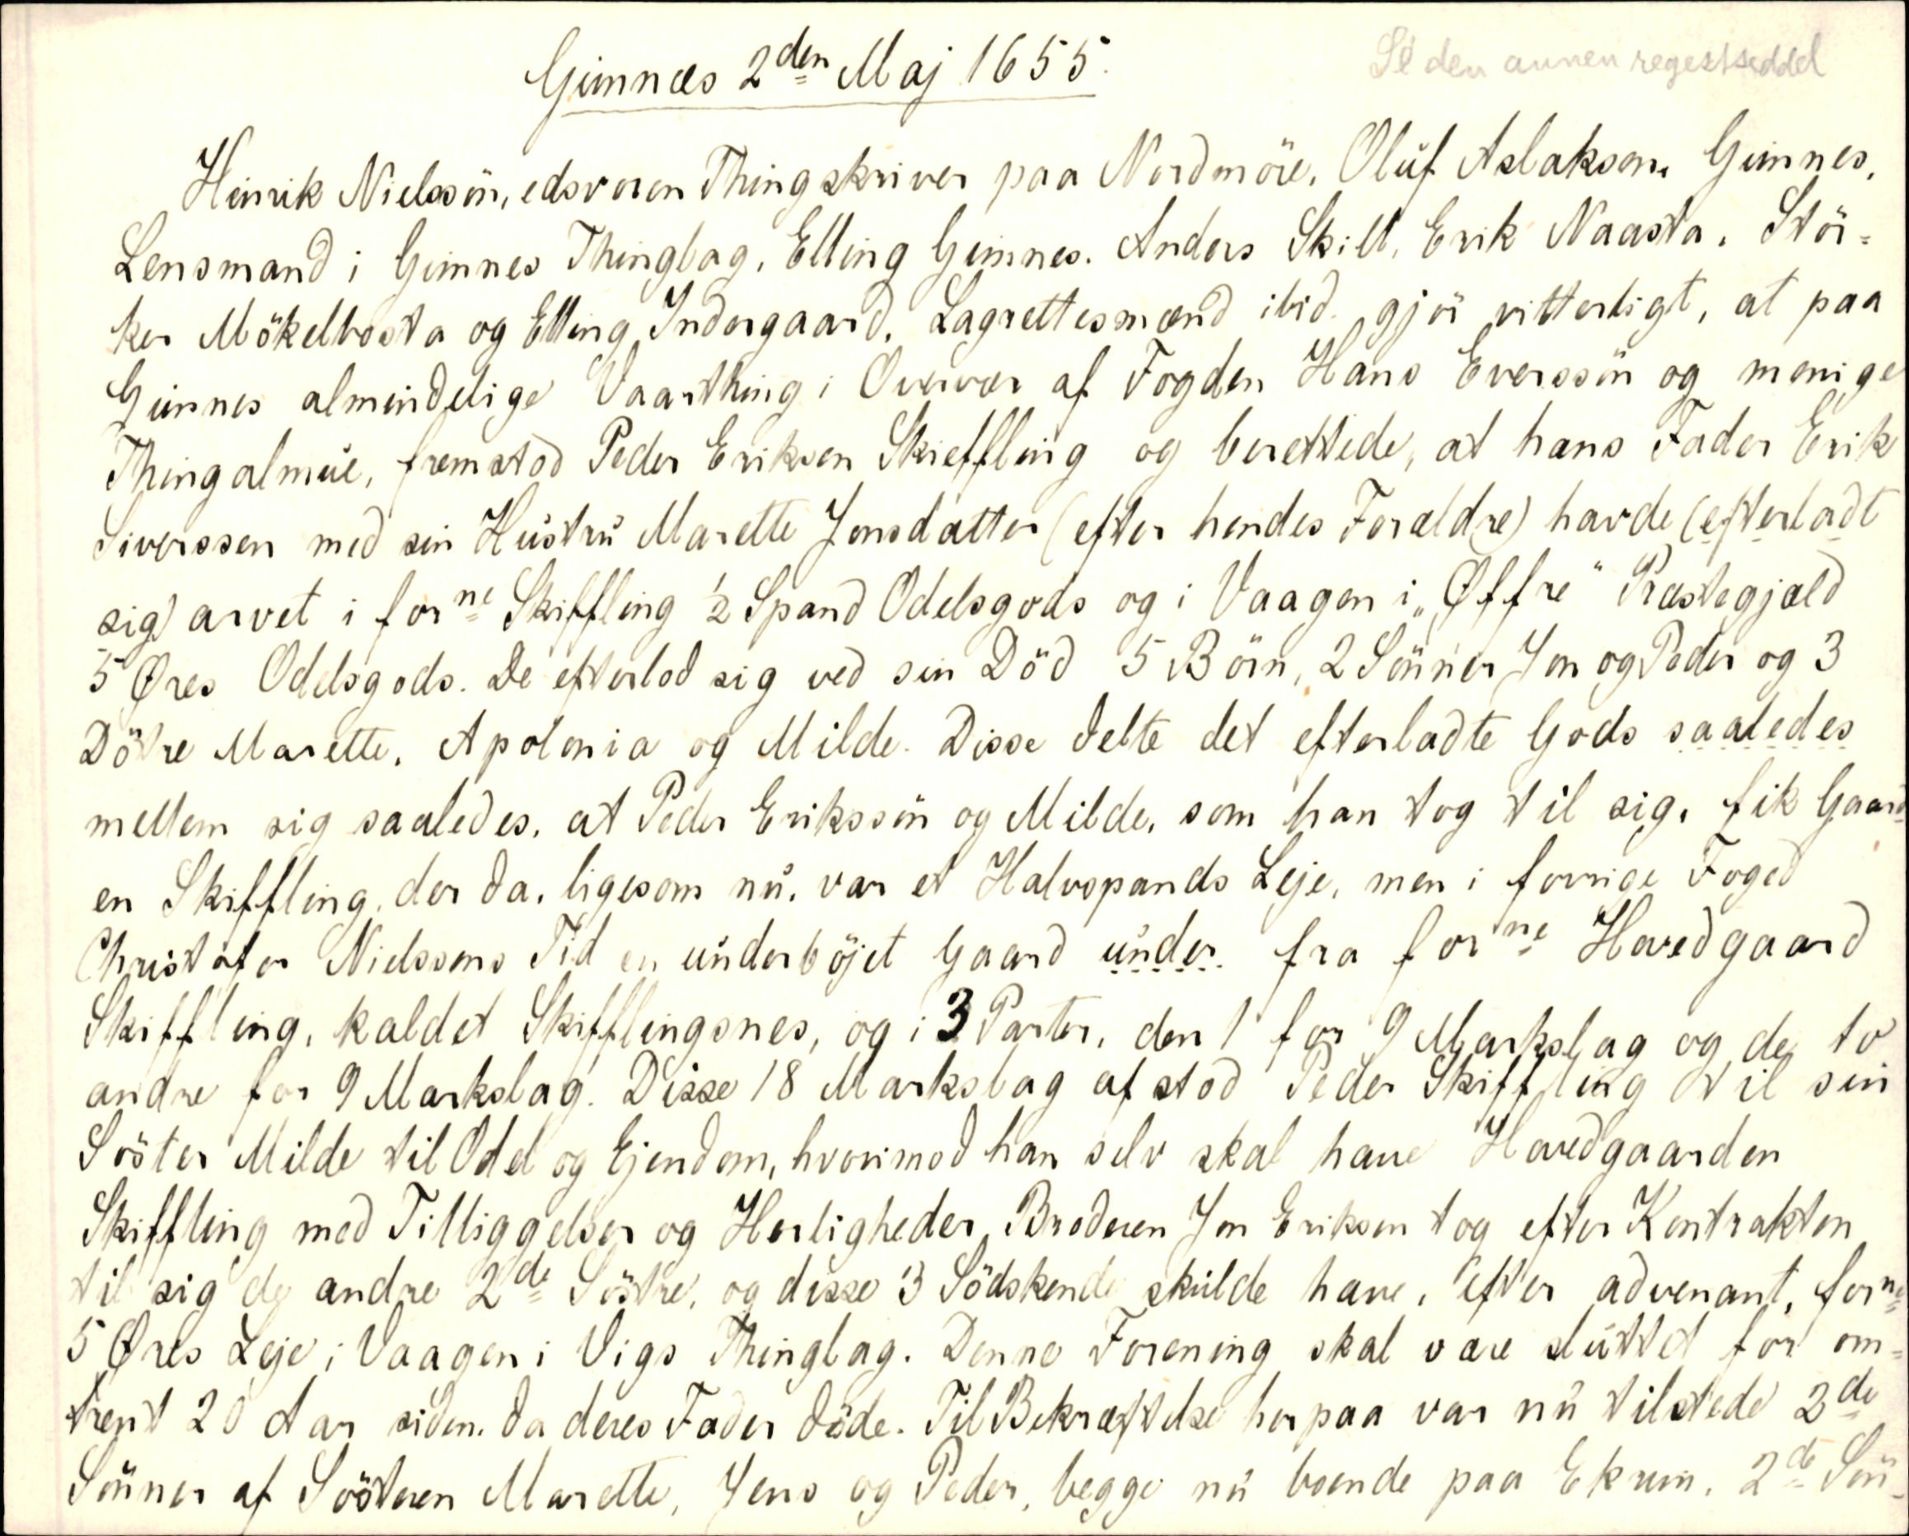 Gimnæs 2den Maj 1655.
Se den annen regestseddel
Henrik Nielssön, edsvoren Thingskriver paa Nordmöre, Oluf Aslaksen, Gimnes,
Lensmand i Gimnes Thinglag, Elling Gimnes. Anders Skilt, Erik Naasta, Stör-
ker Mökelbosta og Elling Indergaard, Lagrettesmænd ibid. gjör vitterligt, at paa
Gimnes almindelige Vaarthing i Overvær af Fogden Hans Everssön og menige
Thingalmue, fremstod Peder Eriksen Skieffling og berettede, at hans Fader Erik
Siverssen med sin Hustru Marette Jonsdatter (efter hendes Forældre) havde (efterladt
sig) arvet i forne Skiffling ½ Spand Odelsgods og i Vaagen i "Øffre" Præstegjæld
5 Øres Odelsgods. De efterlod sig ved sin Död 5 Börn, 2 Sönner Jon og Peder og 3
Dötre Marette, Apolonia og Milde. Disse delte det efterladte Gods saaledes
mellem sig saaledes, at Peder Erikssön og Milde, som han tog til sig, fik Gaard-
en Skiffling, der da, ligesom nu, var et Halvspands Leje, men i forrige Foged
Christofer Nielssens Tid en underböjet Gaard under fra forne Hovedgaard
Skiffling, kaldet Skifflingsnes, og i 3 Parter, den 1 for 9 Markslag og de to
andre for 9 Markslag. Disse 18 Markslag afstod Peder Skiffling til sin
Söster Milde til Odel og Ejendom, hvorimod han selv skal have Hovedgaarden
Skiffling med Tilliggelser og Herligheder. Broderen Jon Eriksen tog efter Kontrakten
til sig de andre 2de Söstre, og disse 3 Södskende skulde have, efter advenant, forne
5 Øres Leje i Vaagen i Vigs Thinglag. Denne Forening skal være sluttet for om-
trent 20 Aar siden, da deres Fader döde. Til Bekræftelse herpaa var nu tilstede 2de
Sönner af Sösteren Marette, Jens og Peder, begge nu boende paa Ekrem, 2de Sön-